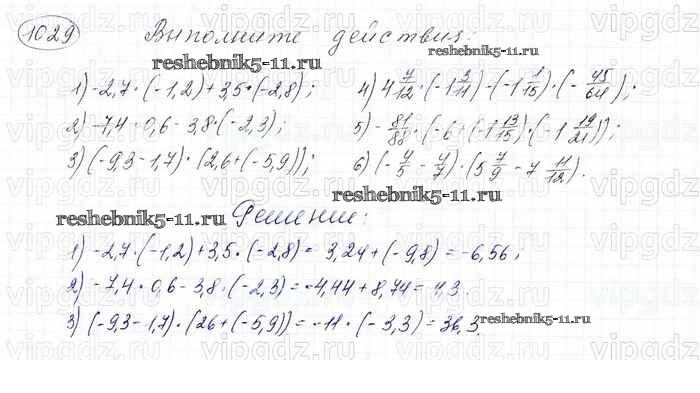 1029 Выполните действия:
reshebnik5-11.ru
reshebnik5-11.ru
1) -2,7·(-1,2)+3,5·(-2,8); 4) 4 7/12·(-1 2/11)-(-1 1/15)·(-45/64);
2) -7,4·0,6-3,8·(-2,3); 5) -81/88·(-6+(-1 13/15)·(-1 19/21));
3) (-9,3-1,7)·(2,6+(-5,9)); 6) (-4/5-4/7)·(5 7/9-7 11/12).
reshebnik5-11.ru
reshebnik5-11.ru
Решение:
1) -2,7·(-1,2)+3,5·(-2,8)= 3,24+(-9,8)=-6,56;
2) -7,4·0,6-3,8·(-2,3)=-4,44+8,74= 4,3.
3) (-9,3-1,7)·(26+(-5,9))=-11·(-3,3)=36,3.
reshebnik5-11.ru
vipgdz.ru